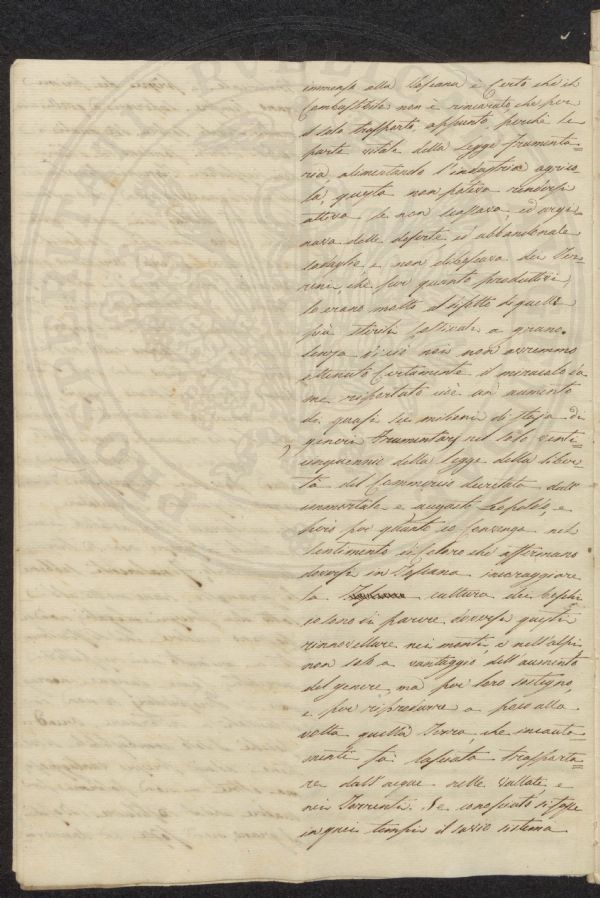 immensa alla Toscana è Certo che il
Combustibile non è rincarato che per
il solo trasporto, appunto perchè la
parte vitale della Legge frumenta=
ria, alimentando l'industria agrico=
la, questa non poteva rendersi
attiva se non scassava, ed arge=
nava delle deserte, ed abbandonate
, e non dei Ter=
reni, che per quanto produttivi,
lo erano molto al rispetto di quelli
più sterili coltivati a grano.
Senza di ciò noi non avremmo
ottenuto Certamente il miracolo da
me riportato cioè un aumento
di quasi sei milioni di staja di
generi frumentarj nel solo venti=
cinquennio della Legge della liber=
tà del Commercio decretata dall'
immortale e augusto Leopoldo, e
però per quanto io convenga nel
sentimento di coloro che affermano
doversi in Toscana incoraggiare
la cultura dei Boschi
sono di parere doversi questi
rinnovellare nei monti, e nell'alpi
non solo a vantaggio dell'aumento
del genere, ma per loro sostegno,
e per riprodurre a poco alla
volta quella Terra, che incauta=
mente fu lasciata trasporta=
re dall'acque nelle Vallate, e
nei Torrenti. Se conosciuto si fosse
in quei tempi il savio sistema